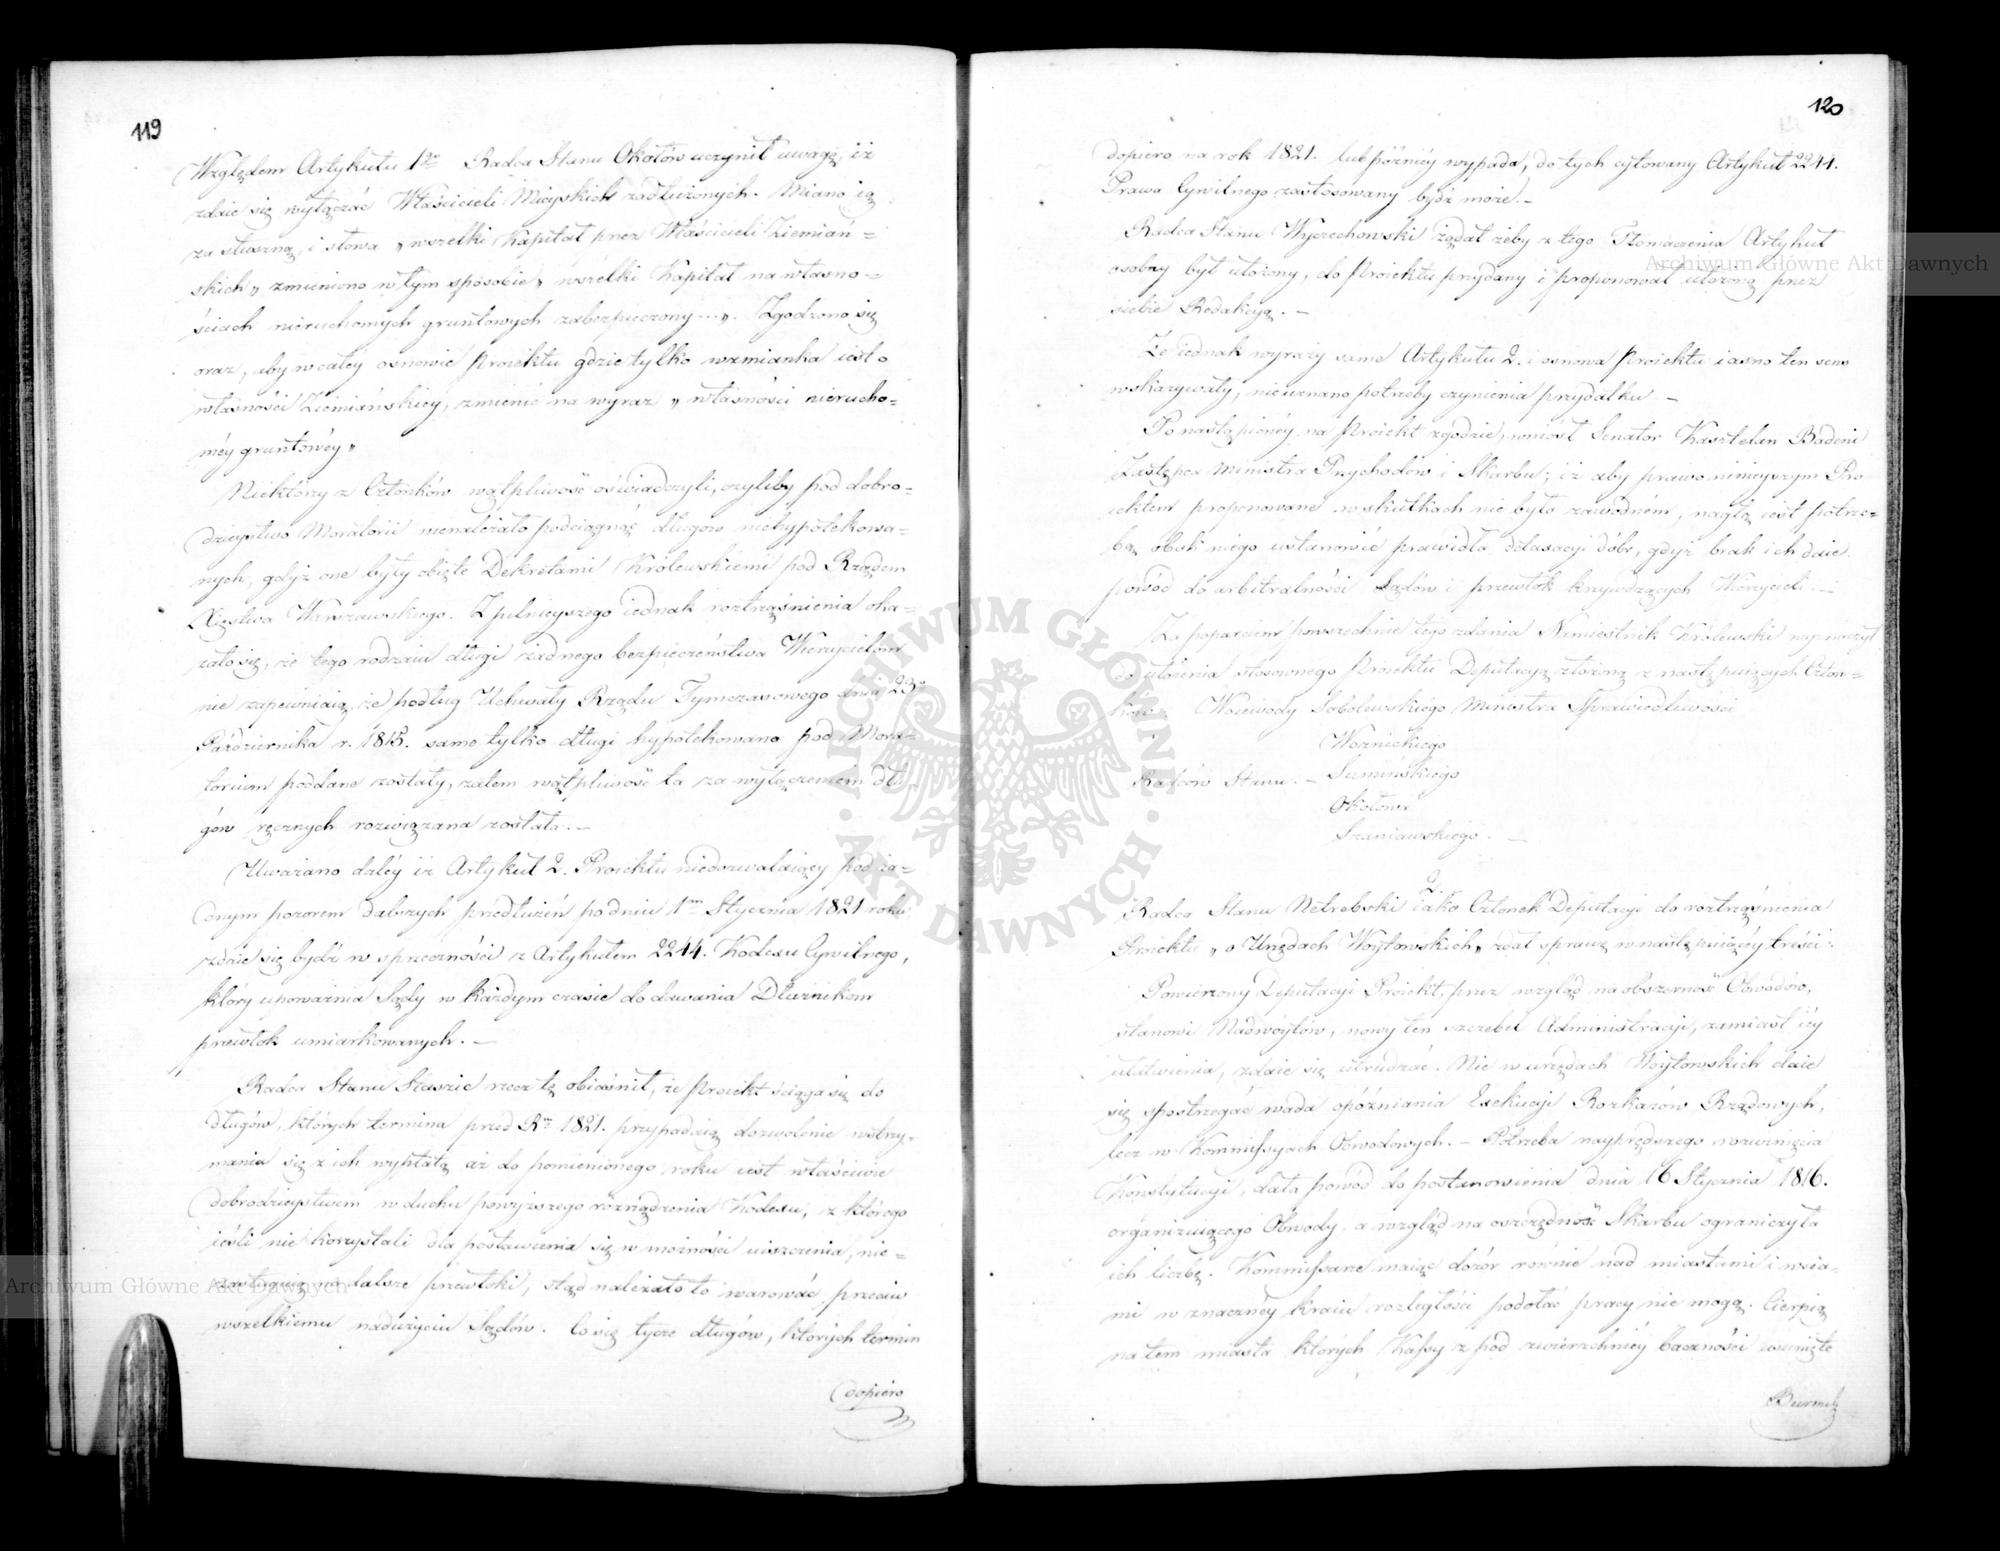 119
Względem Artykułu 1go Radca Stanu Okołów uczynił uwagę, iż
zdaie się wyłączać Właścicieli Mieyskich zadłużonych. Miano ią
za słuszną, i słowa „wszelki Kapitał przez Właścicieli Ziemiań=
skich„ zmieniono w tym sposobie„ wszelki Kapitał na własno=
ściach nieruchomych gruntowych zabezpieczony...„. Zgodzono się
oraz, aby w całéy osnowie Proiektu gdzie tylko wzmianka iest o
własności Ziemiańskiey, zmienić na wyraz „ własności nierucho=
méy gruntowéy„
Niektórzy z Członków wątpliwość oświadczyli, czyliby pod dobro=
dzieystwo Moratorii nienależało podciągnąć długów niehypotekowa=
nych, gdyż one były obięte Dekretami Królewskiemi pod Rządem
Xięstwa Warszawskiego. Z pilnieyszego iednak roztrząśnienia oka=
zało się, że tego rodzaiu długi żadnego bezpieczeństwa Wierzycielom
nie zapewniaią, że podług Uchwały Rządu Tymczasowego dnia 23o
Października r. 1815. same tylko długi hypotekowane pod Mora=
torium poddane zostały, zatem wątpliwość ta za wyłączeniem dłu
gów ręcznych rozwiązana została. —
Uważano daléy iż Artykuł 2. Proiektu niedozwalaiący pod ża=
dnym pozorem dalszych przedłużeń po dniu 1m Stycznia 1821 roku
zdaie się bydź w sprzeczności z Artykułem 2244. Kodexu Cywilnego,
który upoważnia Sądy w każdym czasie do dawania Dłużnikom
przewłok umiarkowanych. —
Radca Stanu Staszic rzecz tę obiaśnił, że Proiekt ściąga się do
długów, których termina przed Rm 1821. przypadaią dozwolenie wstrzy=
mania się z ich wypłatą aż do pomienionego roku iest właściwie
dobrodzieystwem w duchu powyższego rozrządzenia Kodexu, z którego
ieśli nie korzystali dla postawienia się w możności uiszczenia, nie=
zasługuią na dalsze przewłoki, stąd należało to warować przeciw
wszelkiemu nadużyciu Sądów. Co się tycze długów, których termin
dopiéro
120
dopiero na rok 1821. lub późniéy wypada, do tych cytowany Artykuł 2244.
Prawa Cywilnego zastosowany bydź może. —
Radca Stanu Wyczechowski żądał żeby z tego Tłomaczenia Artykuł
osobny był ułożony, do Proiektu przydany i proponował ułożoną przez
siebie Redakcyą. —
Że iednak wyrazy same Artykułu 2. i osnowa Proiektu iasno ten sens
wskazywały, nieuznano potrzeby czynienia przydatku. —
Po nastąpionéy na Proiekt zgodzie, wniósł Senator Kasztelan Badeni
Zastępca Ministra Przychodów i Skarbu; iż aby prawo ninieyszym Pro
iektem proponowane w skutkach nie było zawodném, nagłą iest potrze=
bą obok niego ustanowić prawidła detaxacyi dóbr, gdyż brak ich daie
powód do arbitralności Sądów i przewłok krzywdzących Wierzycieli. —
Za poparciem powszechnie tego zdania Namiestnik Królewski wyznaczył
do ułożenia stosownego Proiektu Deputacyą złożoną z następuiących Człon=
ków. Woiewody Sobolewskiego Ministra Sprawiedliwości
Woźnickiego
Radców Stanu. — Sumińskiego
Okołowa
Szaniawskiego. —
2.
Radca Stanu Netrebski iako Członek Deputacyi do roztrząśnienia
Proiektu „ o Urzędach Woytowskich„ zdał sprawę w następuiącéy treści:
Powierzony Deputacyi Proiekt, przez wzgląd na obszerność Obwodów,
stanowi Nadwóytów, nowy ten szczebel Administracyi, zamiast iéy
ułatwienia, zdaie się utrudzać. Nie w urzędach Woytowskich daie
się spostrzegać wada opóźniania Exekucyi Rozkazów Rządowych,
lecz w Kommissyach Obwodowych. — Potrzeba nayprędszego rozwinięcia
Konstytucyi, dała powód do postanowienia dnia 16 Stycznia 1816.
organizuiącego Obwody, a wzgląd na oszczędność Skarbu ograniczyła
ich liczbę. Kommissarze maiąc dozór równie nad miastami i wsia=
mi w znacznéy kraiu rozległości podołać pracy nie mogą. Cierpią
na tem miasta których Kassy z pod zwierzchniéy baczności usunięte
Archiwum Główne Akt Dawnych
Archiwum Główne Akt Dawnych
ARCHIWUM GŁÓWNE
AKT DAWNYCH